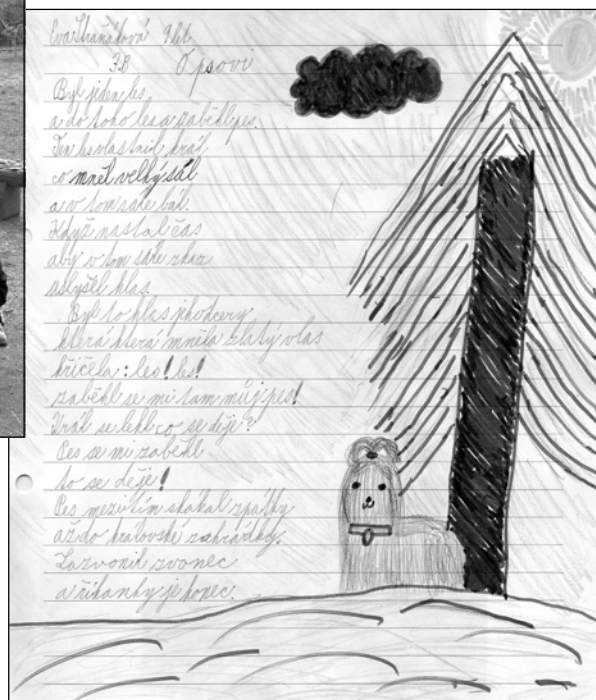 Eva Straňáková 9 let
3.B O psovi
Byl jeden les
a do toho lesa zaběhl pes.
Ten les vlastnil král
co mněl velký sál
a v tom sále bál.
Když nastal čas
aby v tom sále zhas
uslyšel hlas.
Byl to hlas jeho dcery
která která mněla zlatý vlas
křičela: les! les!
zaběhl se mi tam můj pes!
Král se lekl co se děje?
Pes se mi zaběhl
to se děje!
Pes mezitím skákal zpátky
až do královské zahrádky.
Zazvonil zvonec
a říkanky je konec.